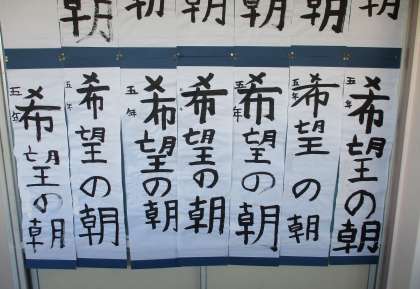 朝
初
朝
朝
朝
朝
朝
五年
希望の朝
五年
希望の朝
五年
希望の朝
希望の朝
五年
希望の朝
五年
希望の朝
五年
希望の朝